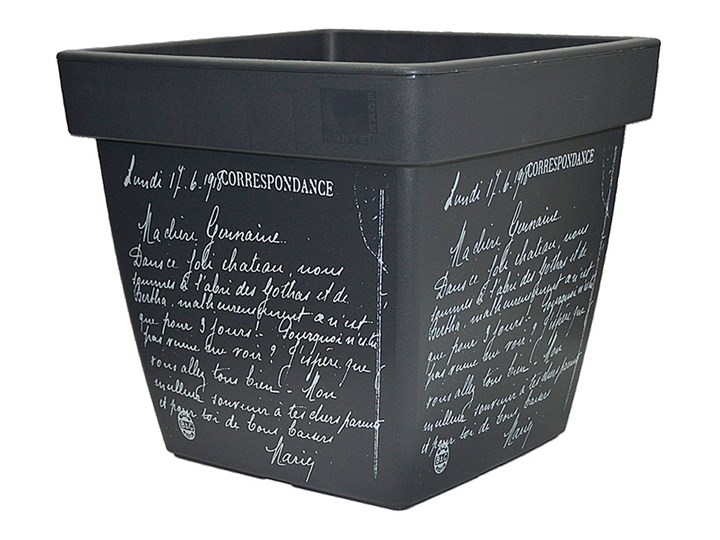 Lundi 17.6.198 CORRESPONDANCE
Ma chère Germaine
Dans ce joli chateau, nous
sommes à l'abri des Gothas et de
Bertha, malheureusement ce n'est
que pour 3 jours! Pourquoi n'etes
pas venue me voir? J'espère que
vous allez tous bien - Mon
meilleur souvenir à tes chers parents
et pour toi de bons baisers
Lundi 17.6.198 CORRESPONDANCE
Ma chère Germaine
Dans ce joli chateau, nous
sommes à l'abri des Gothas et de
Bertha, malheureusement ce n'est
que pour 3 jours! Pourquoi n'etes
pas venue me voir? J'espère que
vous allez tous bien Mon
meilleur souvenir à tes chers parents
et pour toi de bons baisers